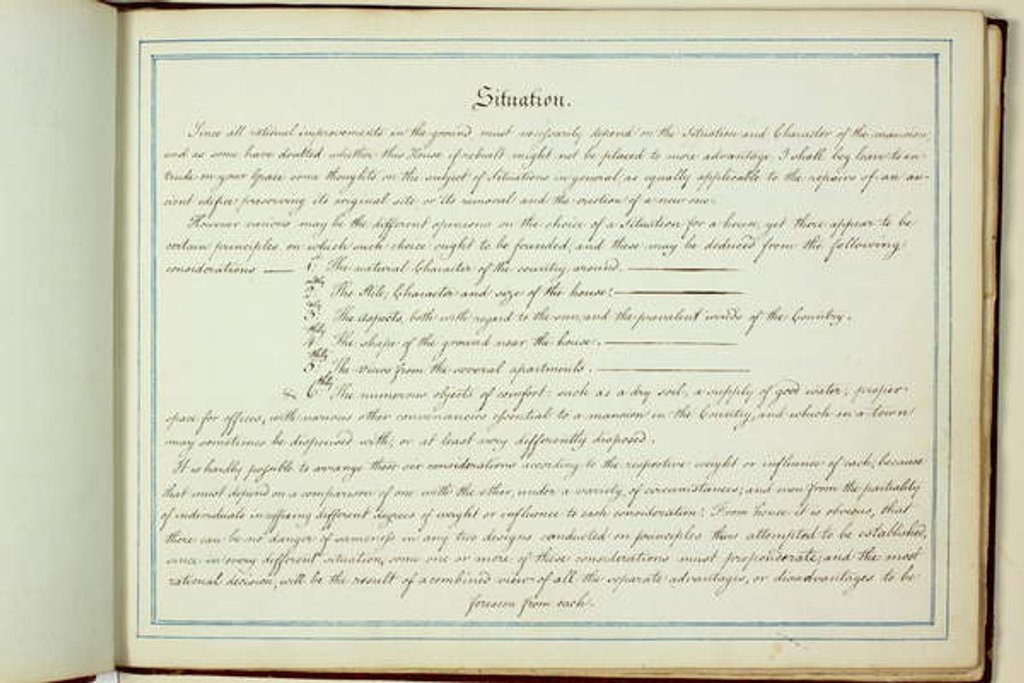 Situation.
Since all rational improvements in the ground must necessarily depend on the Situation and Character of the mansion,
and as some have doubted whether this House if rebuilt might not be placed to more advantage, I shall beg leave to in-
trude on your Grace some thoughts on the subject of Situations in general, as equally applicable to the repairs of an an-
cient edifice preserving its original site or its removal and the erection of a new one.
However various may be the different opinions on the choice of a Situation for a house, yet there appear to be
certain principles on which such choice ought to be founded, and these may be deduced from the following
considerations —
1st The natural Character of the country around. —
2dly The Stile, Character and size of the house. —
3dly The Aspects, both with regard to the sun, and the prevalent winds of the Country.
4thly The shape of the ground near the house. —
5thly The views from the several apartments. —
6thly The numerous objects of comfort: such as a dry soil, a supply of good water, proper
space for offices, with various other conveniencies essential to a mansion in the Country, and which in a town
may sometimes be dispensed with, or at least very differently disposed.
It is hardly possible to arrange these six considerations according to the respective weight or influence of each, because
that must depend on a comparison of one with the other, under a variety of circumstances; and even from the partiality
of individuals in affixing different degrees of weight or influence to each consideration. From hence it is obvious, that
there can be no danger of sameness in any two designs conducted on principles thus attempted to be established,
since in every different situation, some one or more of these considerations must preponderate; and the most
rational decision, will be the result of a combined view of all the separate advantages, or disadvantages to be
foreseen from each.